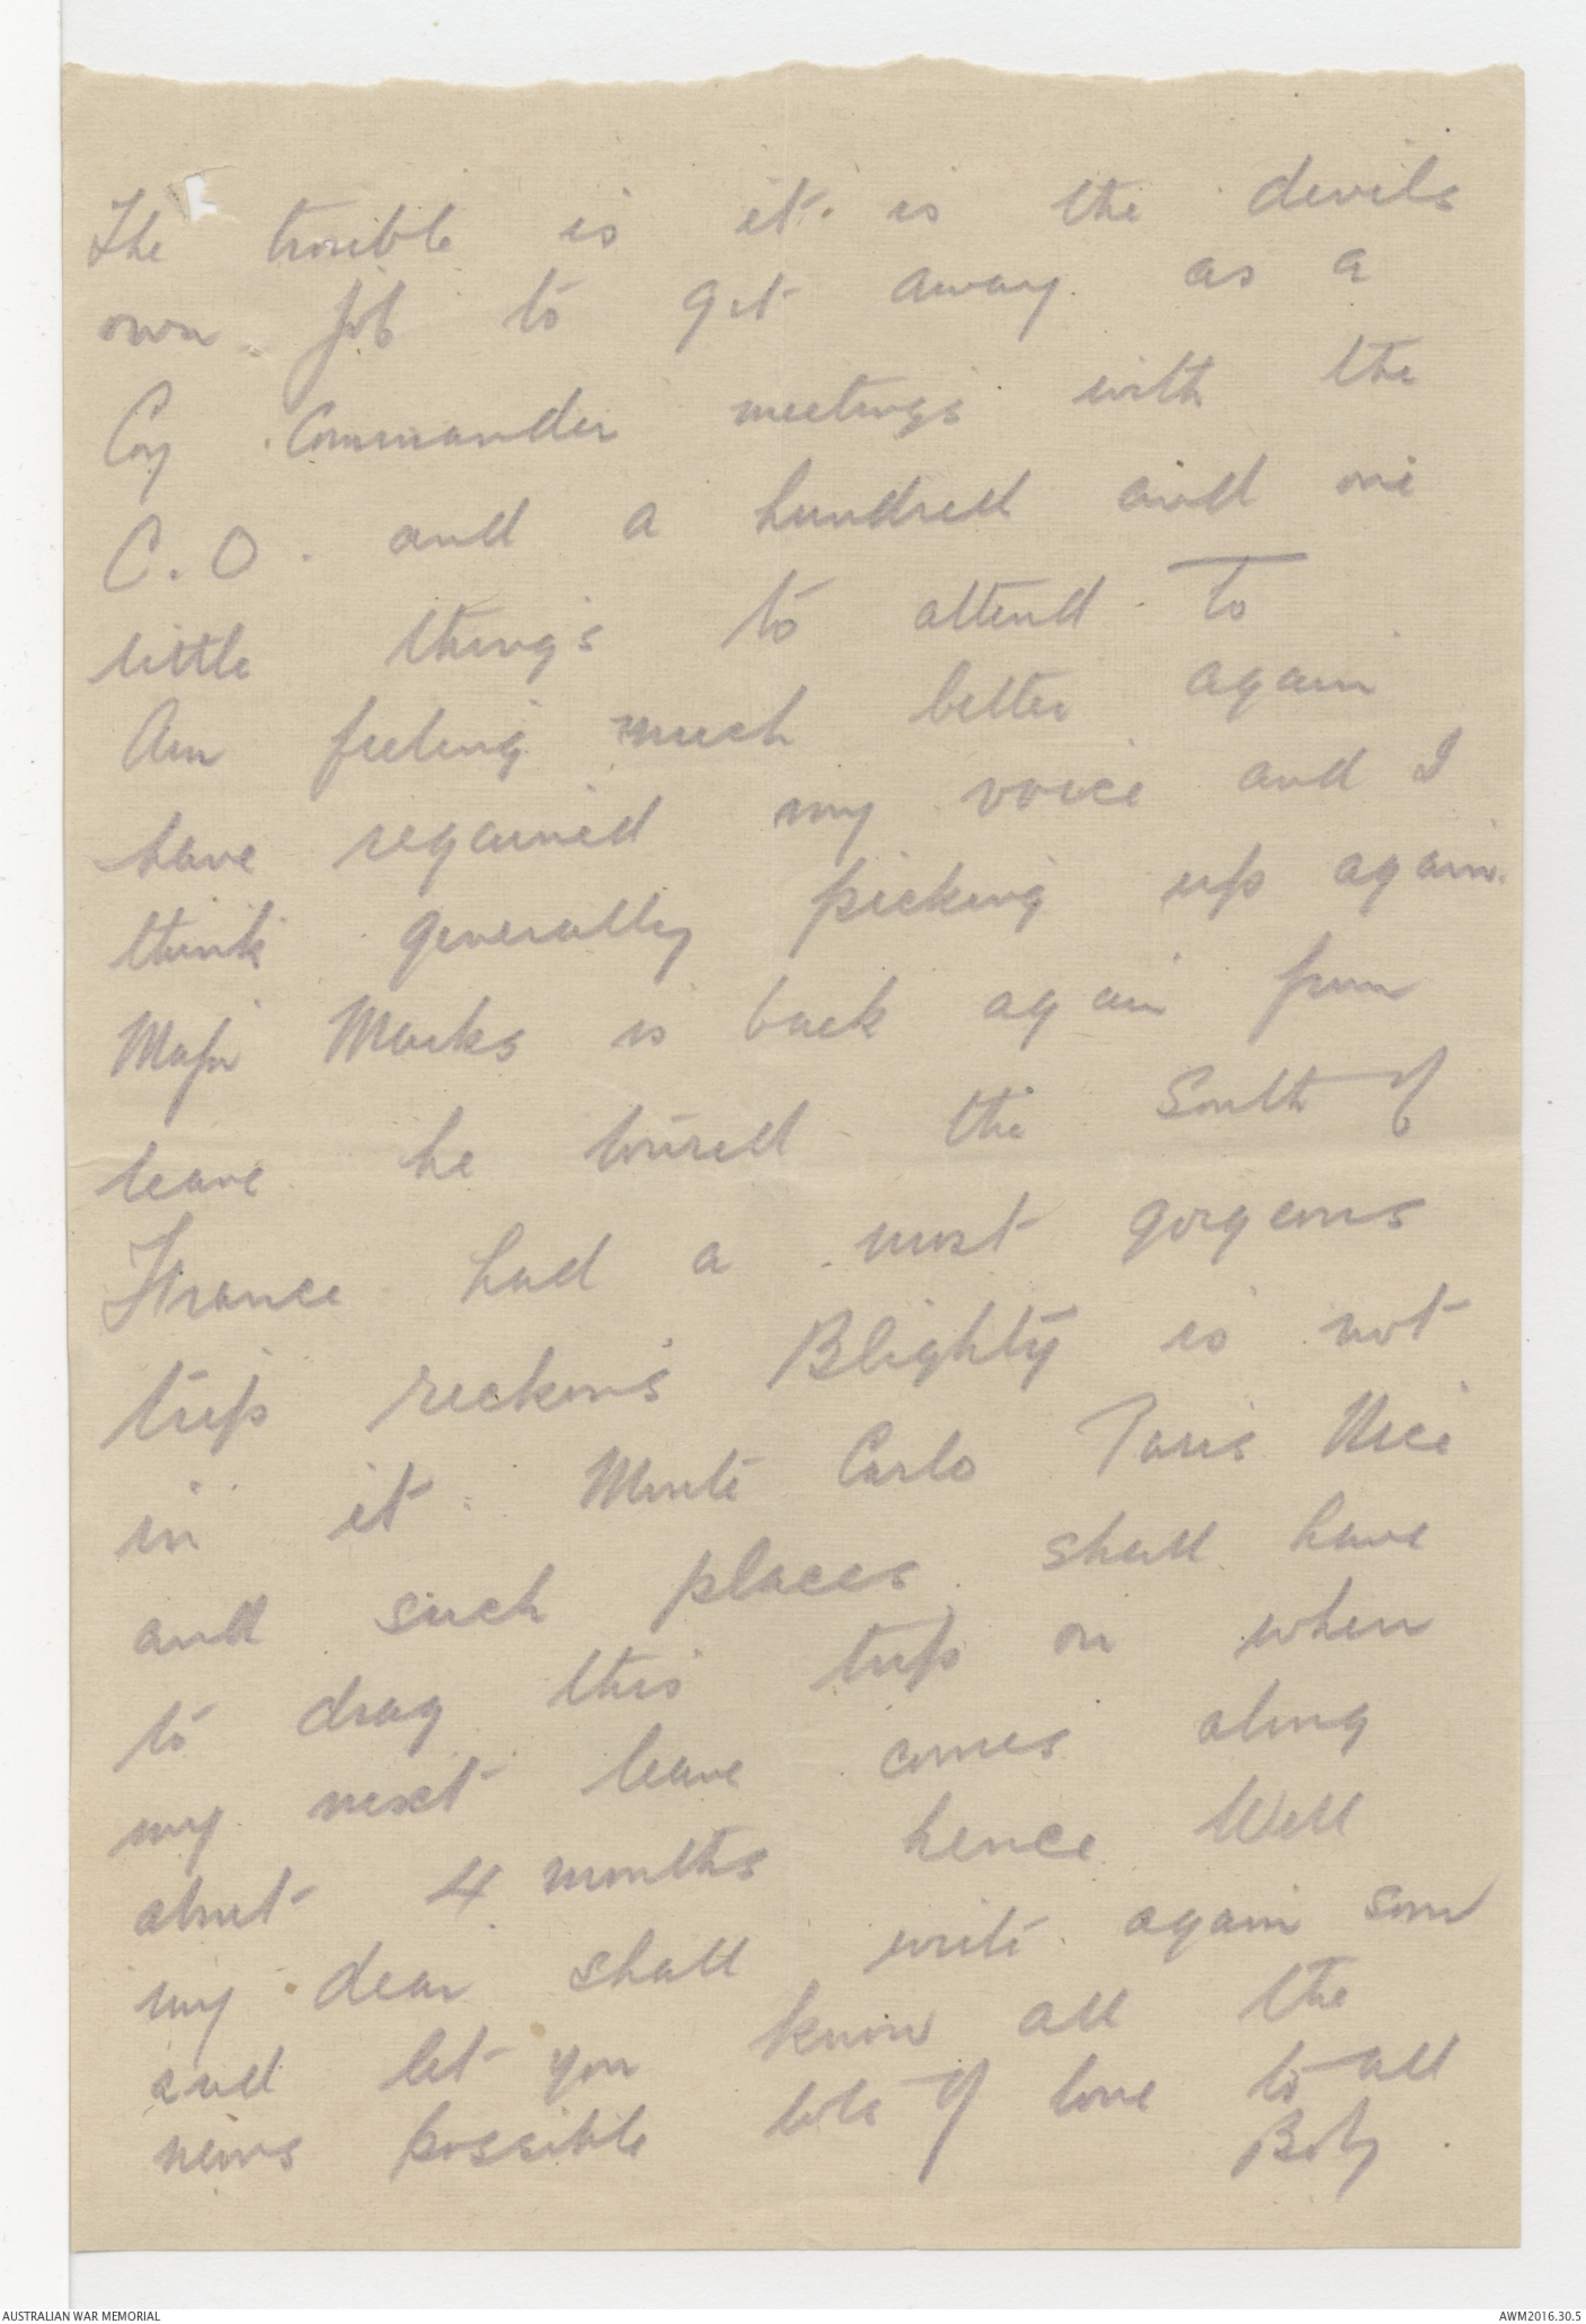 The trouble is it is the devils
own job to get away as a
Coy Commander meetings with the
C.O. and a hundred and one
little things to attend to
Am feeling much better again
have regained my voice and I
think generally picking up again.
Major Marks is back again from
leave he toured the South of
France had a most gorgeous
trip reckons Blighty is not
in it. Monte Carlo Paris Nice
and such places shall have
to drag this trip on when
my next leave comes along
about 4 months hence Well
my dear shall write again soon
and let you know all the
news possible lots of love to all
AUSTRALIAN WAR MEMORIAL
AWM2016.30.5